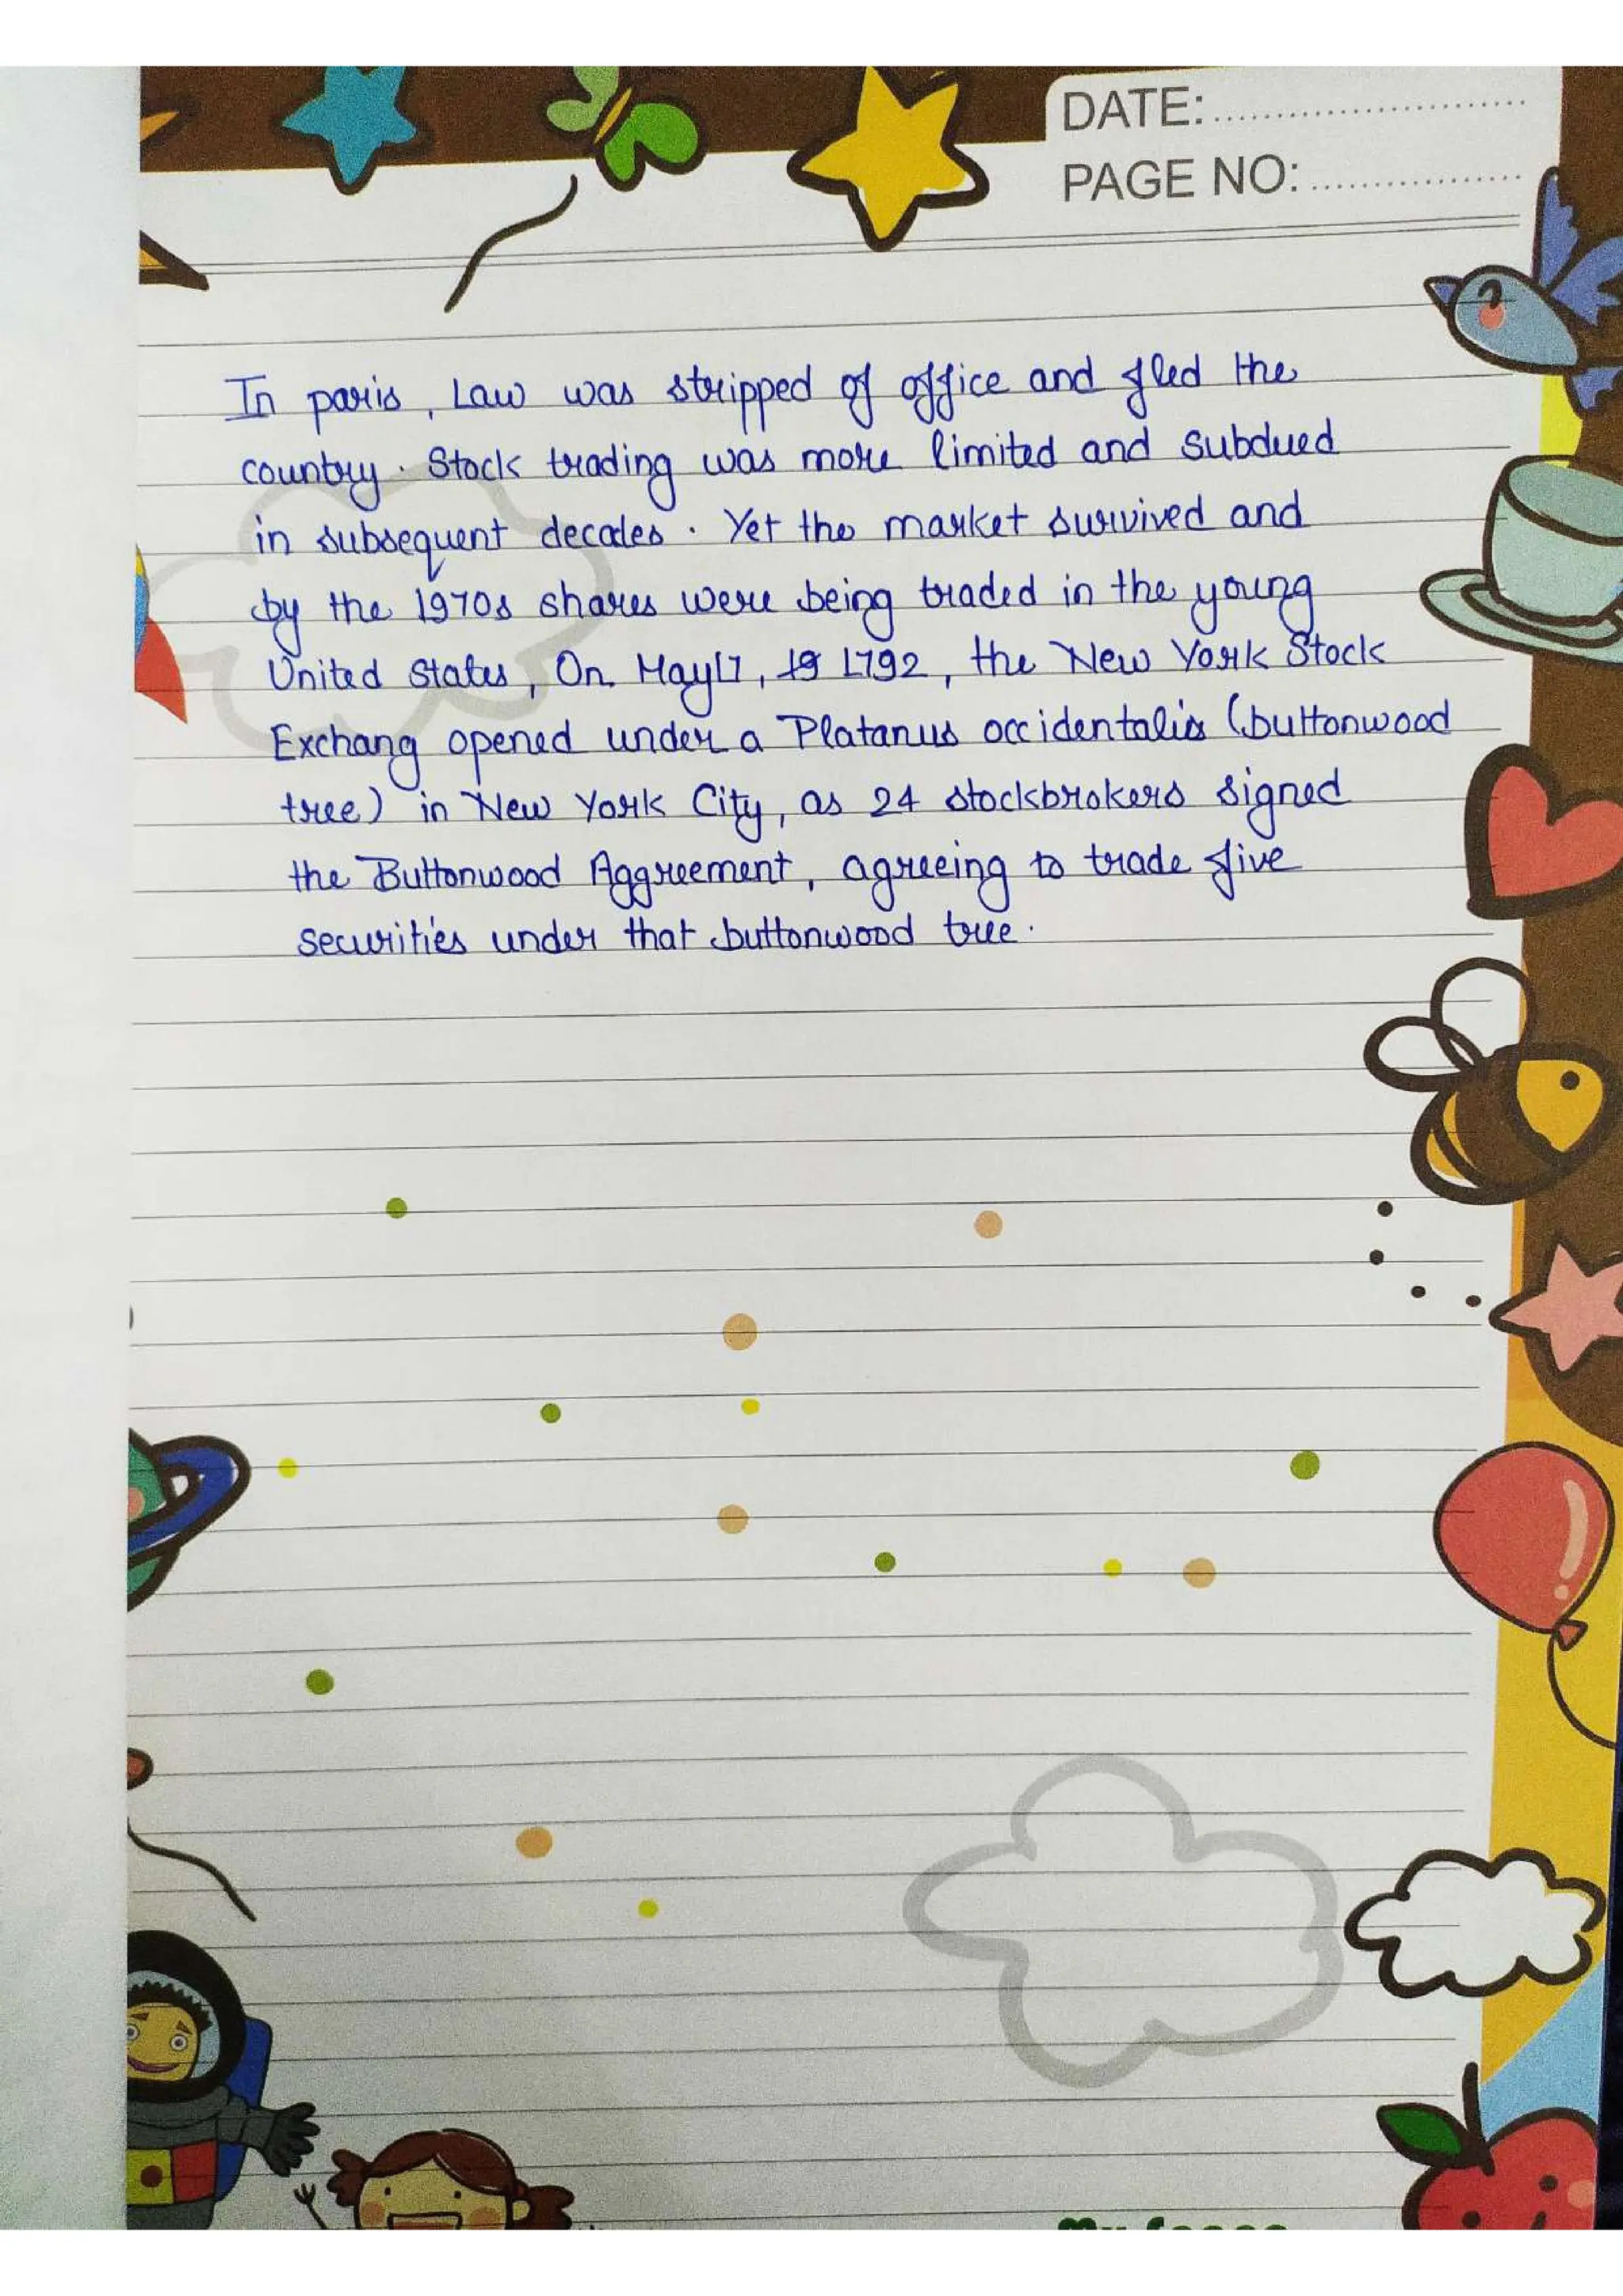 DATE:
PAGE NO:
In paris, Law was stripped of office and fled the
country. Stock trading was more limited and subdued
in subsequent decades. Yet the market survived and
by the 1970s shares were being traded in the young
United States, On May17, 19 1792, the New York Stock
Exchang opened under a Platanus occidentalis (buttonwood
tree) in New York City, as 24 stockbrokers signed
the Buttonwood Aggreement, agreeing to trade five
securities under that buttonwood tree.